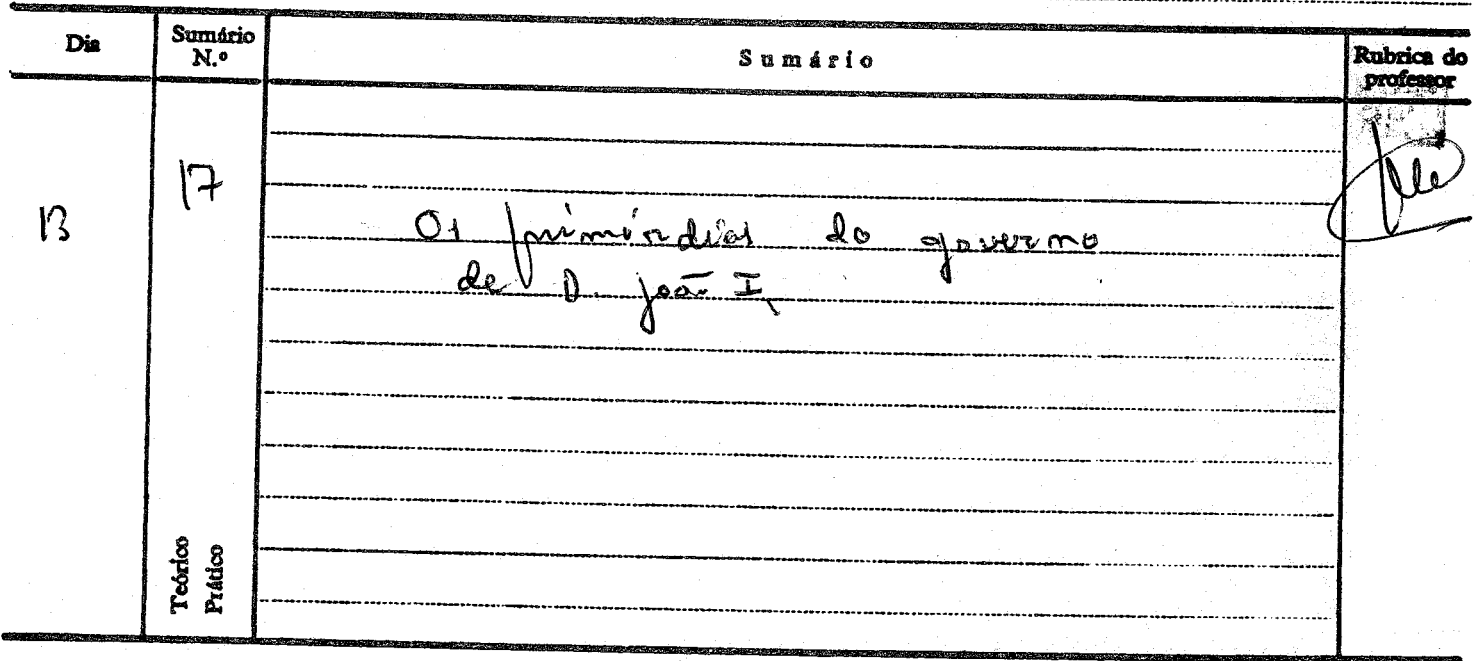 Dia
Sumário N.º
Sumário
Rubrica do professor
13
17
Os primórdios do governo
de D. João I,
Teórico
Prático